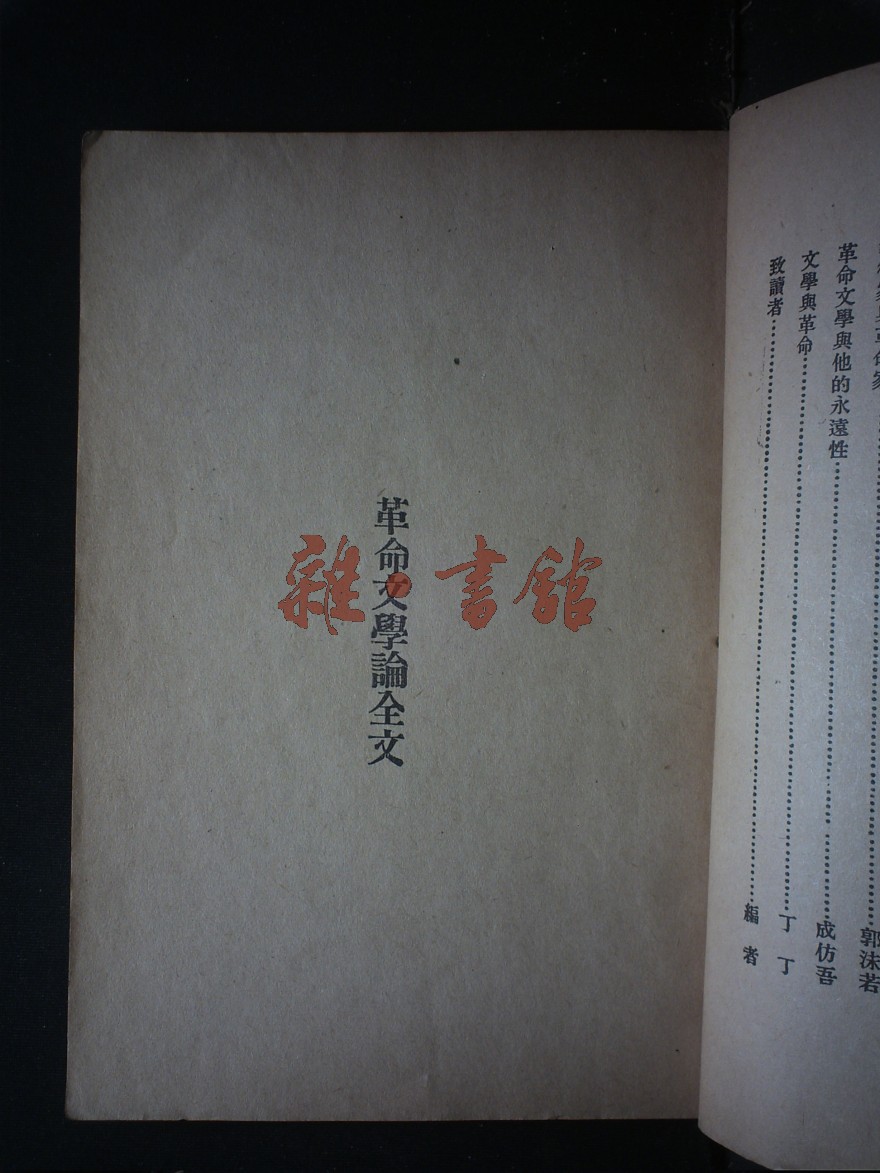 郭沫若
革命文學與他的永遠性……成仿吾
文學與革命……丁丁
致讀者……編者
革命文學論全文
雜·書館